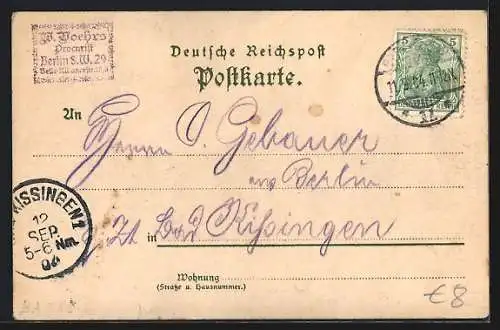 W. Voehrs
Procurist
Berlin S.W. 29
Deutsche Reichspost
Postkarte.
5
An
Herrn O. Gebauer
aus Berlin
Zt in Bad Kissingen
KISSINGEN 1
12
SEP.
5-6 Nm.
04
Wohnung
(Straße u. Hausnummer.)
€8